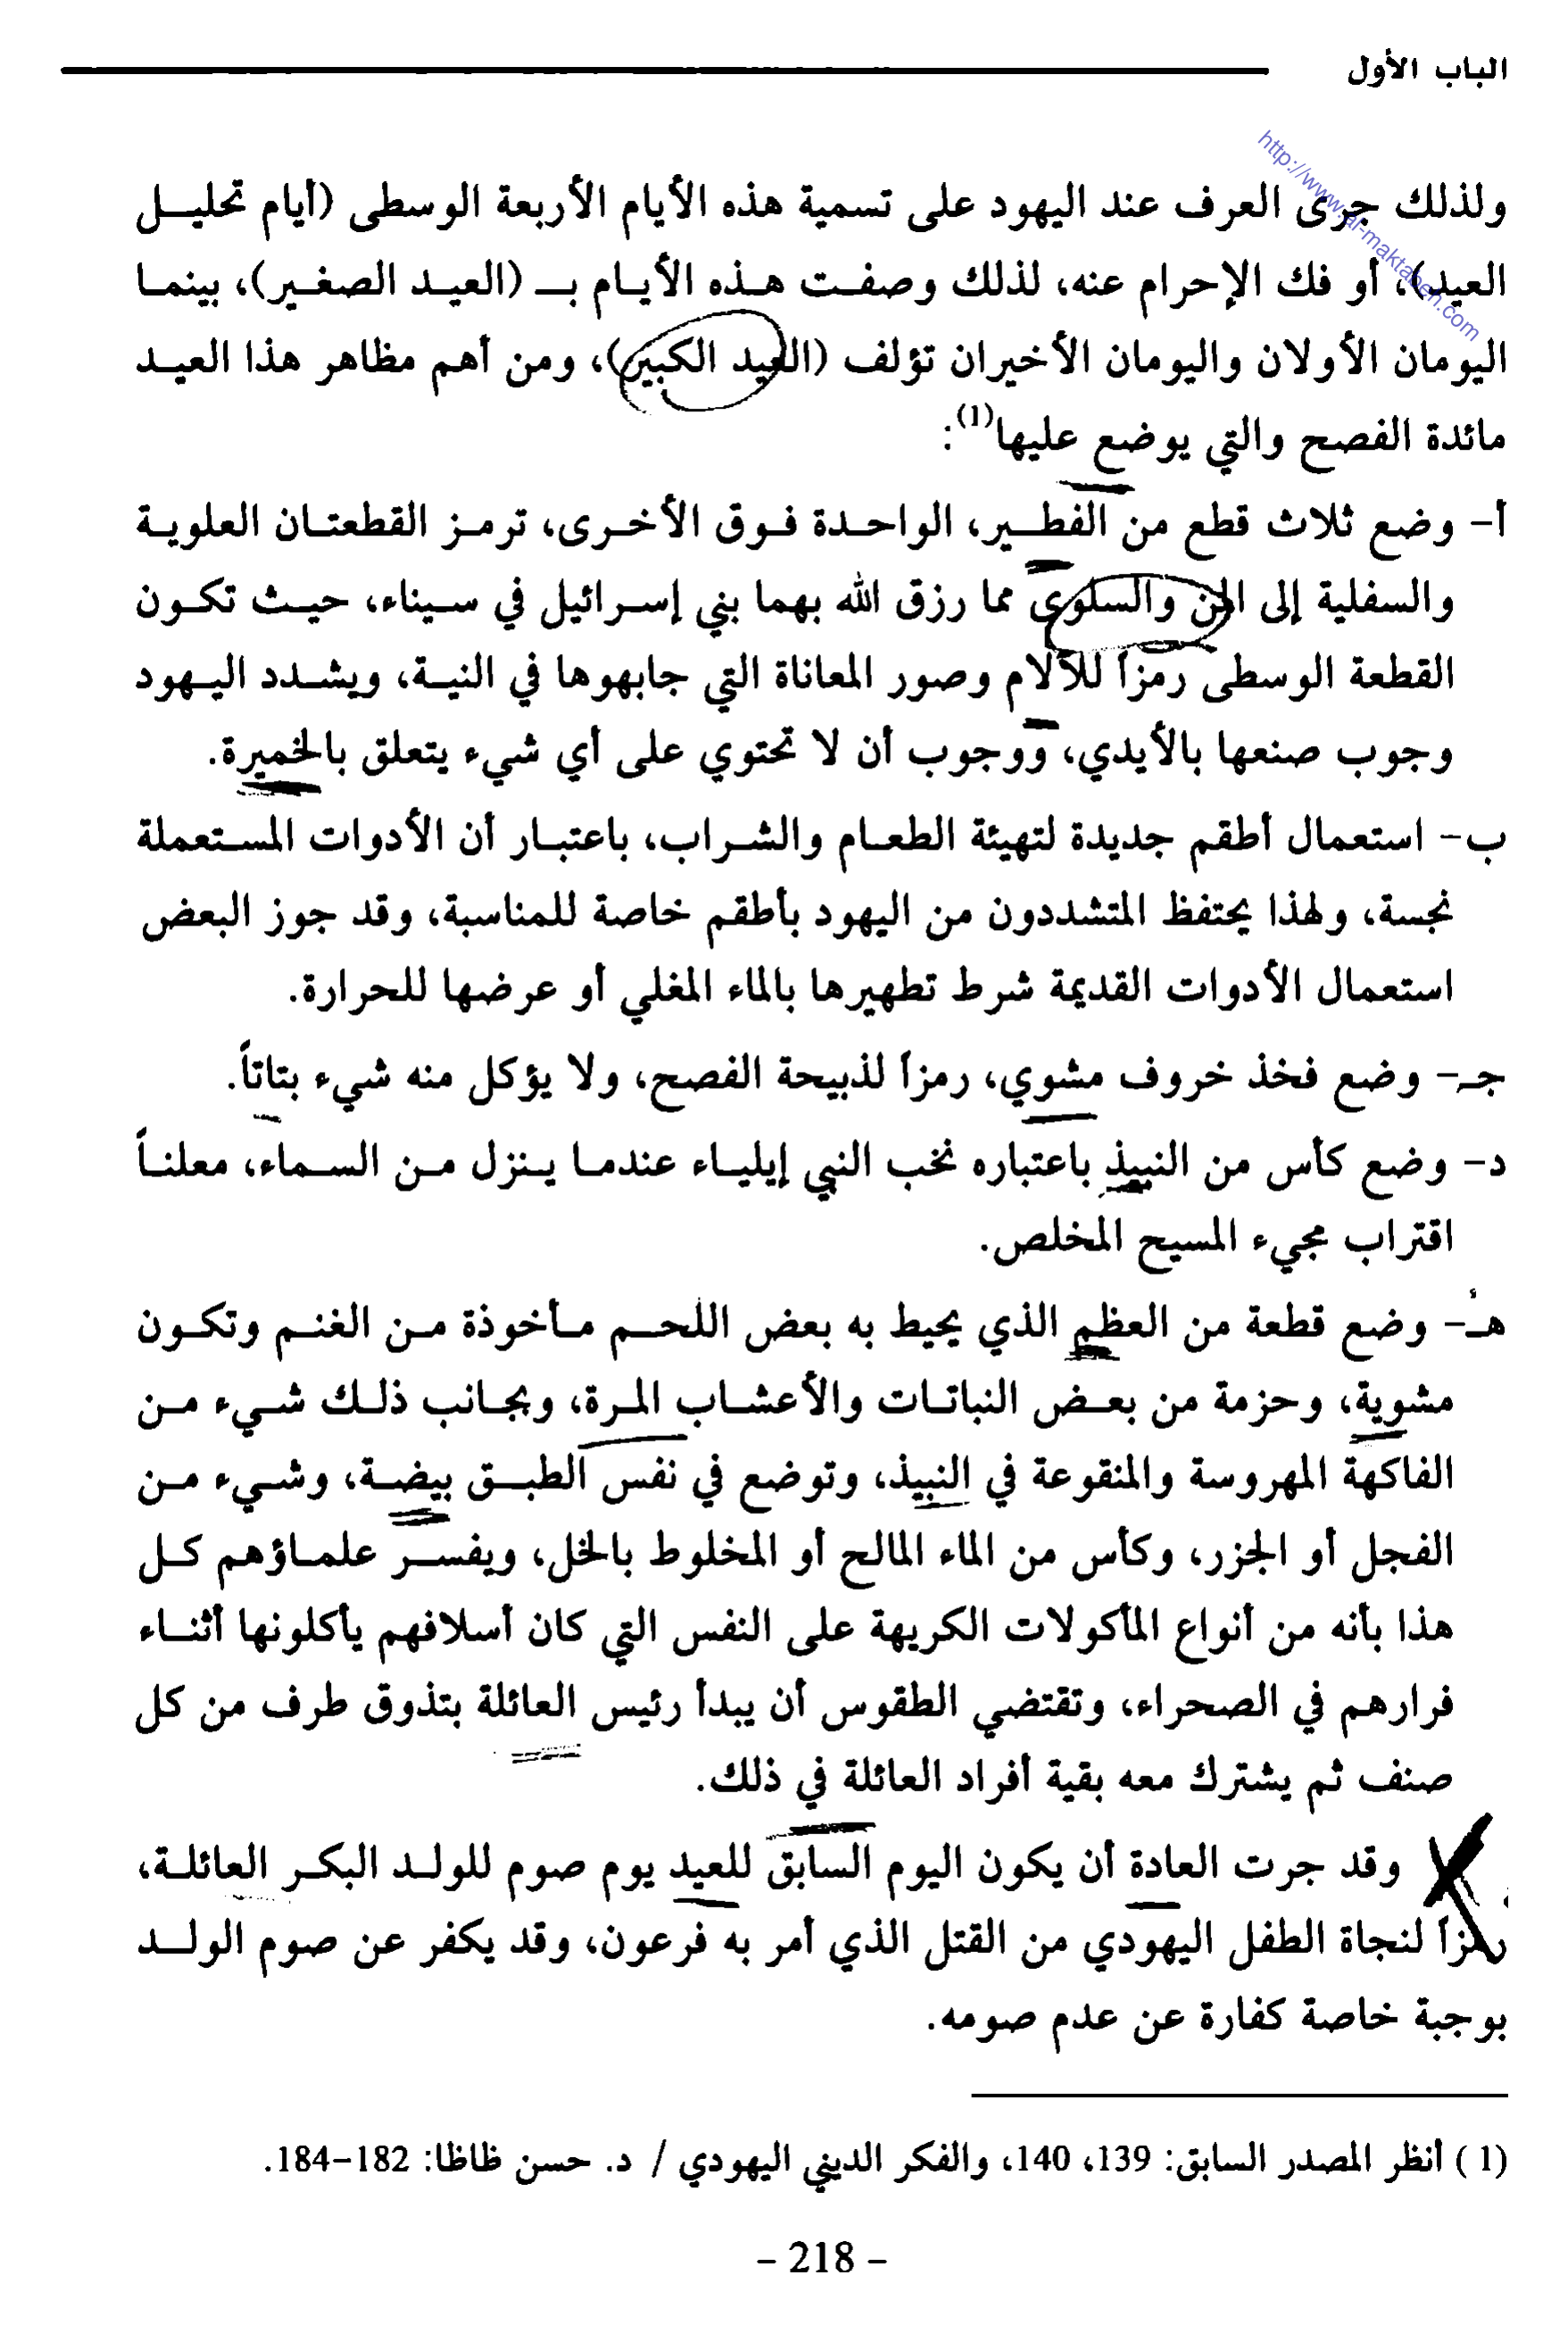 الباب الأول
http://www.al-maktabeh.com
ولذلك جرى العرف عند اليهود على تسمية هذه الأيام الأربعة الوسطى (أيام تحليل
العيد)، أو فك الإحرام عنه، لذلك وصفت هذه الأيام بـ (العيد الصغير)، بينما
اليومان الأولان واليومان الأخيران تؤلف (العيد الكبير)، ومن أهم مظاهر هذا العيد
مائدة الفصح والتي يوضع عليها(1):
أ- وضع ثلاث قطع من الفطير، الواحدة فوق الأخرى، ترمز القطعتان العلوية
والسفلية إلى المن والسلوى مما رزق الله بهما بني إسرائيل في سيناء، حيث تكون
القطعة الوسطى رمزاً للآلام وصور المعاناة التي جابهوها في النية، ويشدد اليهود
وجوب صنعها بالأيدي، ووجوب أن لا تحتوي على أي شيء يتعلق بالخميرة.
ب- استعمال أطقم جديدة لتهيئة الطعام والشراب، باعتبار أن الأدوات المستعملة
نجسة، ولهذا يحتفظ المتشددون من اليهود بأطقم خاصة للمناسبة، وقد جوز البعض
استعمال الأدوات القديمة شرط تطهيرها بالماء المغلي أو عرضها للحرارة.
جـ- وضع فخذ خروف مشوي، رمزاً لذبيحة الفصح، ولا يؤكل منه شيء بتاتاً.
د- وضع كأس من النبيذ باعتباره نخب النبي إيلياء عندما ينزل من السماء، معلناً
اقتراب مجيء المسيح المخلص.
هـ- وضع قطعة من العظم الذي يحيط به بعض اللحم مأخوذة من الغنم وتكون
مشوية، وحزمة من بعض النباتات والأعشاب المرة، وبجانب ذلك شيء من
الفاكهة المهروسة والمنقوعة في النبيذ، وتوضع في نفس الطبق بيضة، وشيء من
الفجل أو الجزر، وكأس من الماء المالح أو المخلوط بالخل، ويفسر علماؤهم كل
هذا بأنه من أنواع المأكولات الكريهة على النفس التي كان أسلافهم يأكلونها أثناء
فرارهم في الصحراء، وتقتضي الطقوس أن يبدأ رئيس العائلة بتذوق طرف من كل
صنف ثم يشترك معه بقية أفراد العائلة في ذلك.
وقد جرت العادة أن يكون اليوم السابق للعيد يوم صوم للولد البكر العائلة،
رمزاً لنجاة الطفل اليهودي من القتل الذي أمر به فرعون، وقد يكفر عن صوم الولد
بوجبة خاصة كفارة عن عدم صومه.
(1) أنظر المصدر السابق: 139، 140، والفكر الديني اليهودي / د. حسن ظاظا: 182-184.
- 218 -